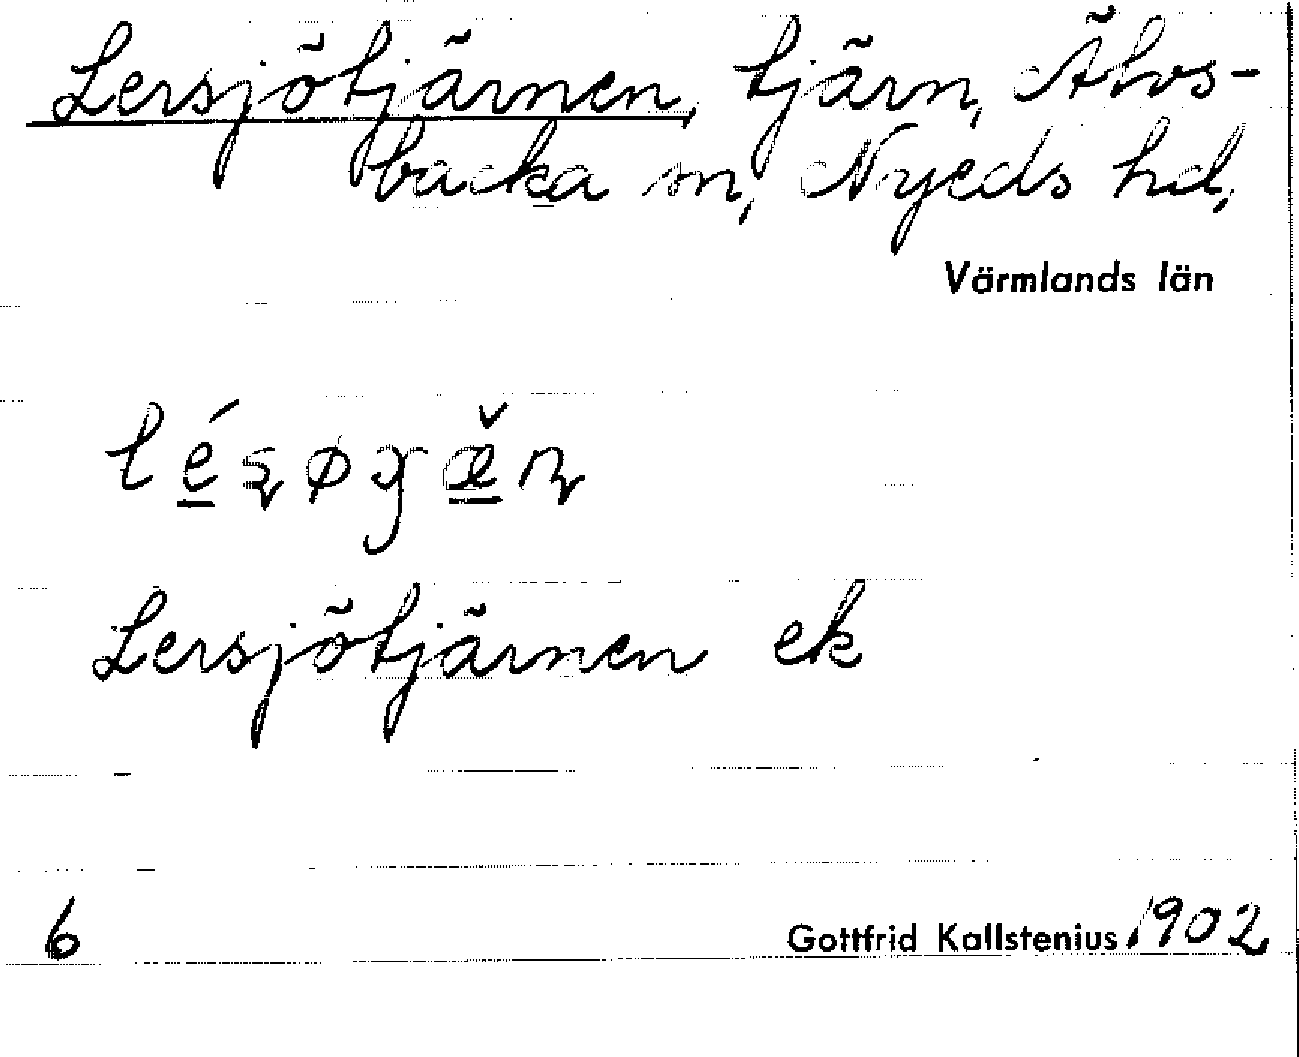 Lersjötjärnen, tjärn, Älvs-
backa sn, Nyeds hd,
Värmlands län
Lersjötjärnen ek
6 Gottfrid Kallstenius 1902